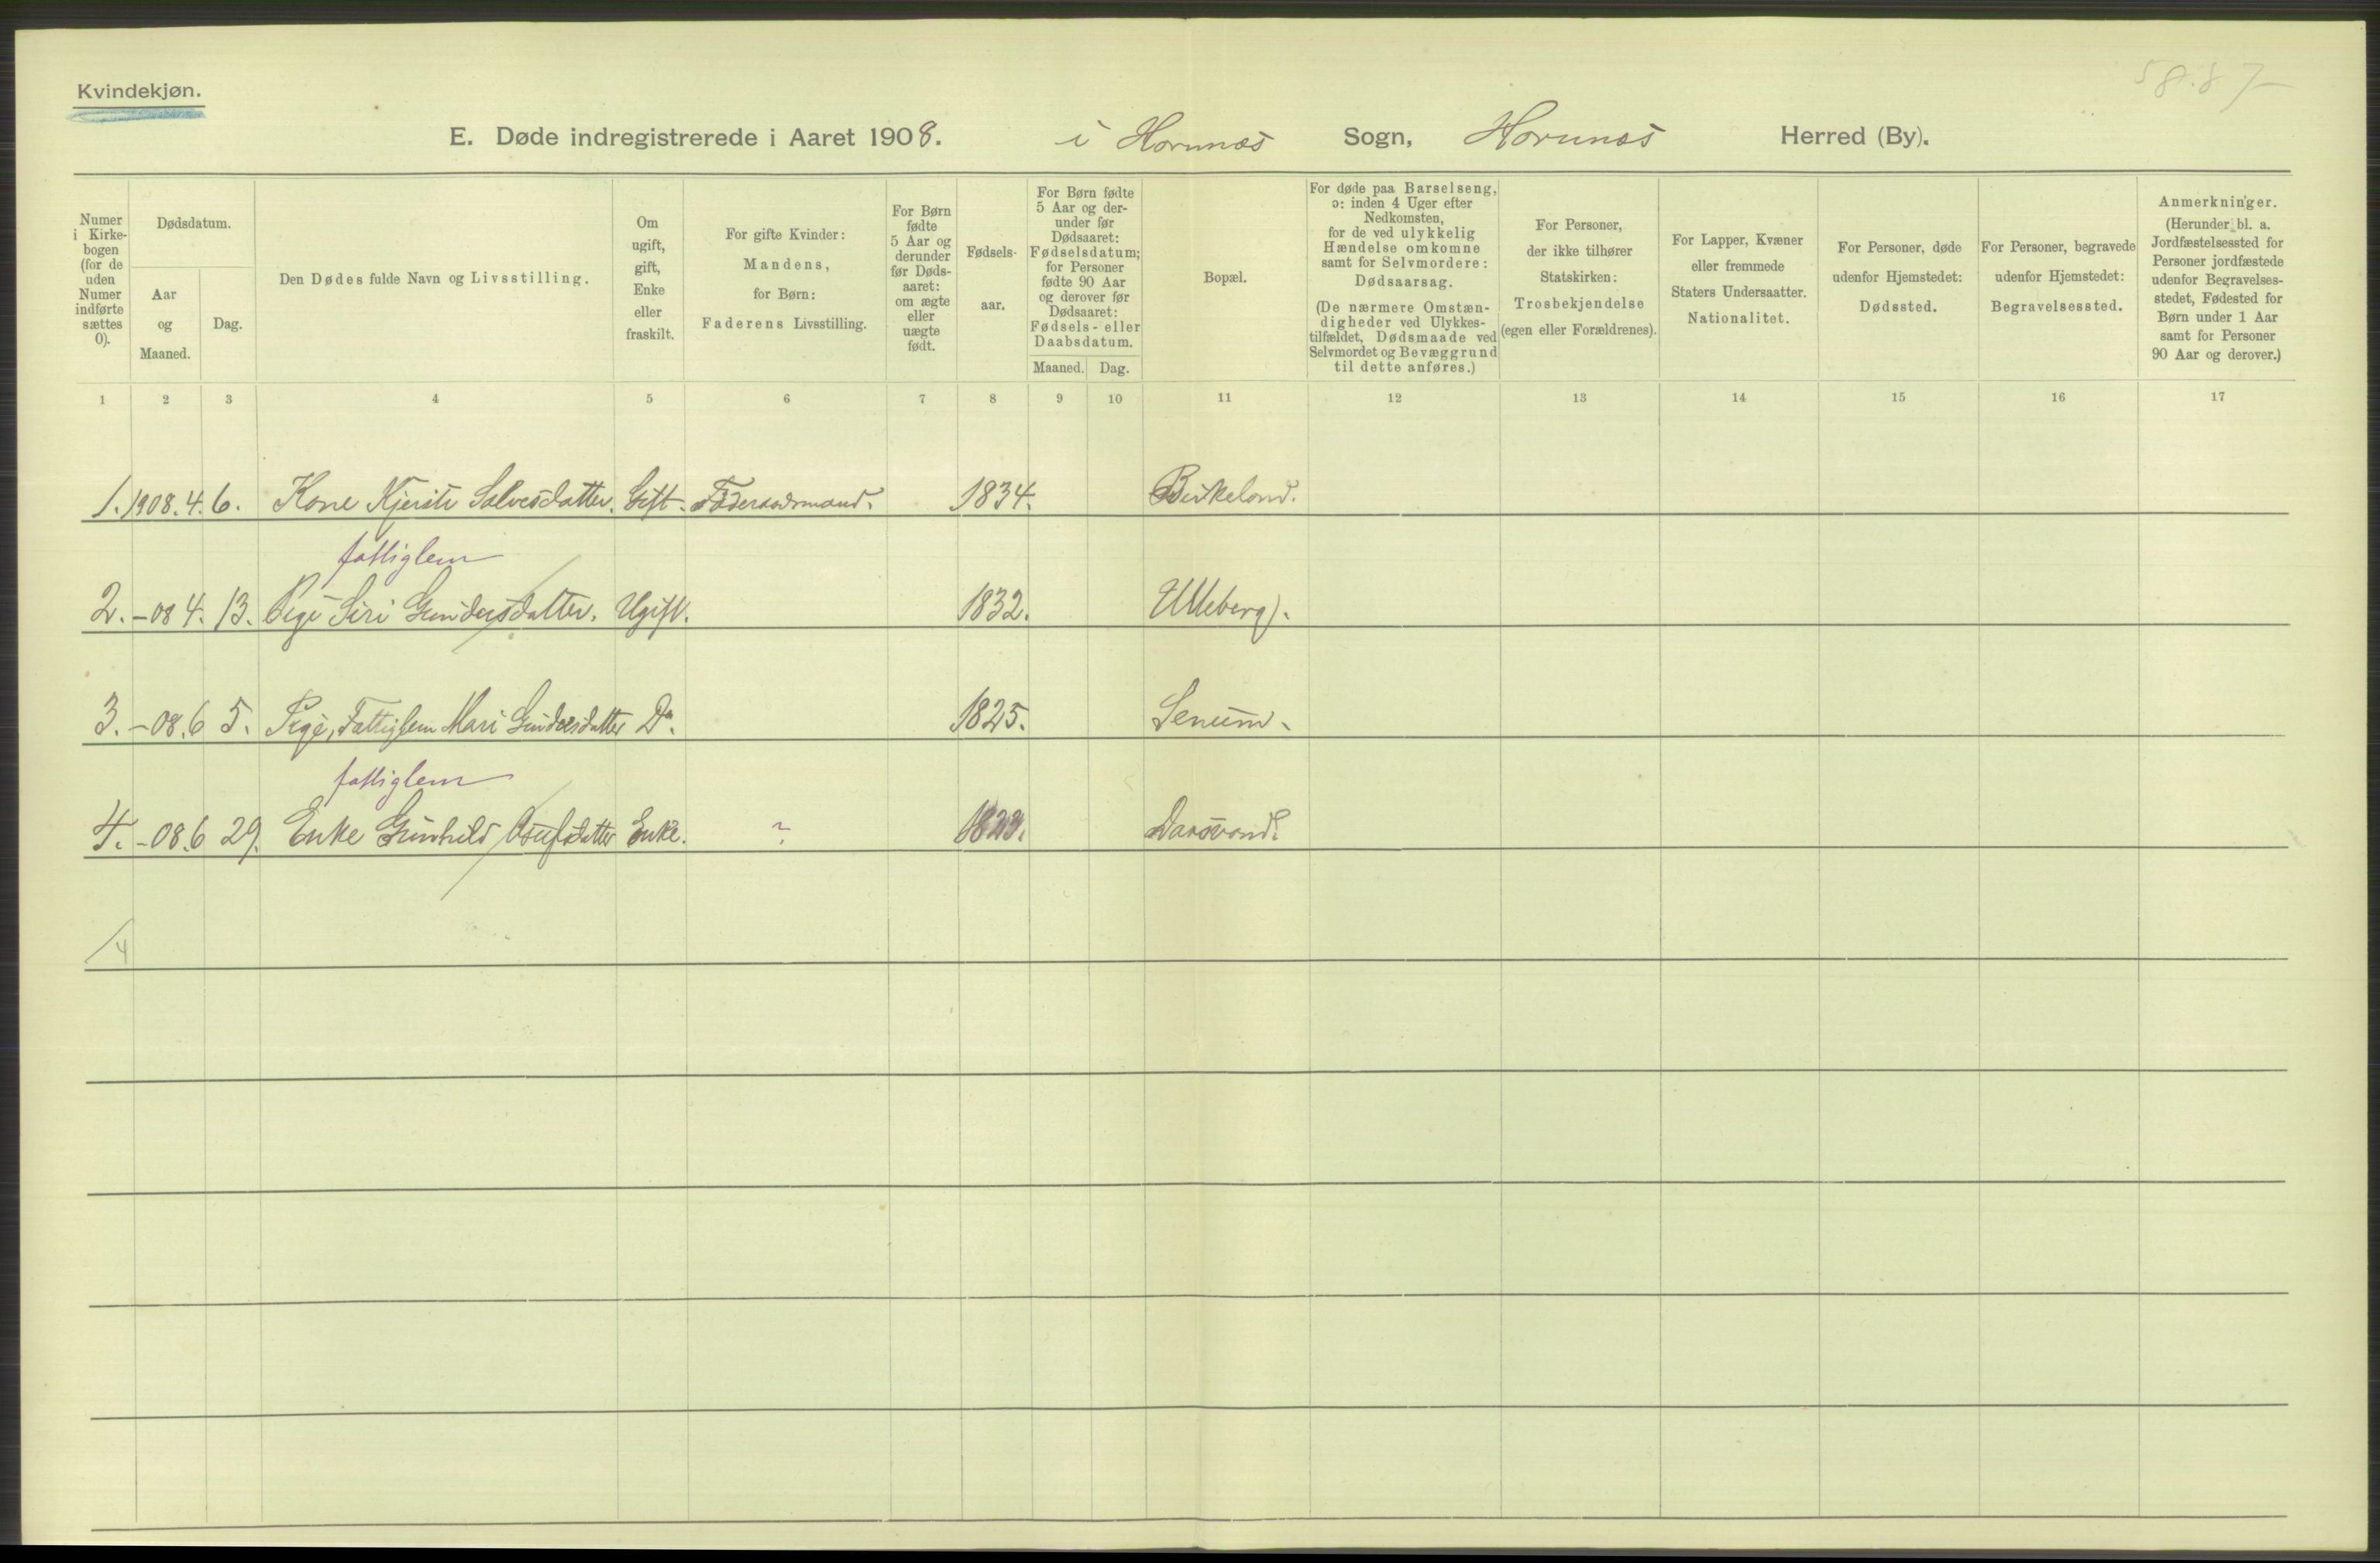 Kvindekjøn.
58.87-
E. Døde indregistrerede i Aaret 1908. i Hornnæs Sogn, Hornnæs Herred (By).
Numer i Kirke-bogen (for de uden Numer indførte sættes 0).
Dødsdatum.
Aar og Maaned.
Dag.
Den Dødes fulde Navn og Livsstilling.
Om ugift, gift, Enke eller fraskilt.
For gifte Kvinder: Mandens, for Børn: Faderens Livsstilling.
For Børn fødte 5 Aar og derunder før Døds-aaret: om ægte eller uægte født.
Fødsels-aar.
For Børn fødte 5 Aar og der-under før Dødsaaret: Fødselsdatum; for Personer fødte 90 Aar og derover før Dødsaaret: Fødsels- eller Daabsdatum.
Maaned. Dag.
Bopæl.
For døde paa Barselseng, ɔ: inden 4 Uger efter Nedkomsten, for de ved ulykkelig Hændelse omkomne samt for Selvmordere: Dødsaarsag.
(De nærmere Omstæn-digheder ved Ulykkes-tilfældet, Dødsmaade ved Selvmordet og Bevæggrund til dette anføres.)
For Personer, der ikke tilhører Statskirken: Trosbekjendelse (egen eller Forældrenes).
For Lapper, Kvæner eller fremmede Staters Undersaatter. Nationalitet.
For Personer, døde udenfor Hjemstedet: Dødssted.
For Personer, begravede udenfor Hjemstedet: Begravelsessted.
Anmerkninger.
(Herunder bl. a. Jordfæstelsessted for Personer jordfæstede udenfor Begravelses-stedet, Fødested for Børn under 1 Aar samt for Personer 90 Aar og derover.)
1 2 3 4 5 6 7 8 9 10 11 12 13 14 15 16 17
1. 1908. 4. 6. Kone Kjersti Salvesdatter. Gift. Føderaadsmand. 1834. Birkeland.
fattiglem
2. -08 4. 13. Pige Siri Gundersdatter. Ugift. 1832. Uleberg.
3. -08. 6 5. Pige, Fattiglem Mari Gundersdatter Do. 1825. Senum.
fattiglem
4. -08. 6 29. Enke Gunhild Enke. ? 1823.
4